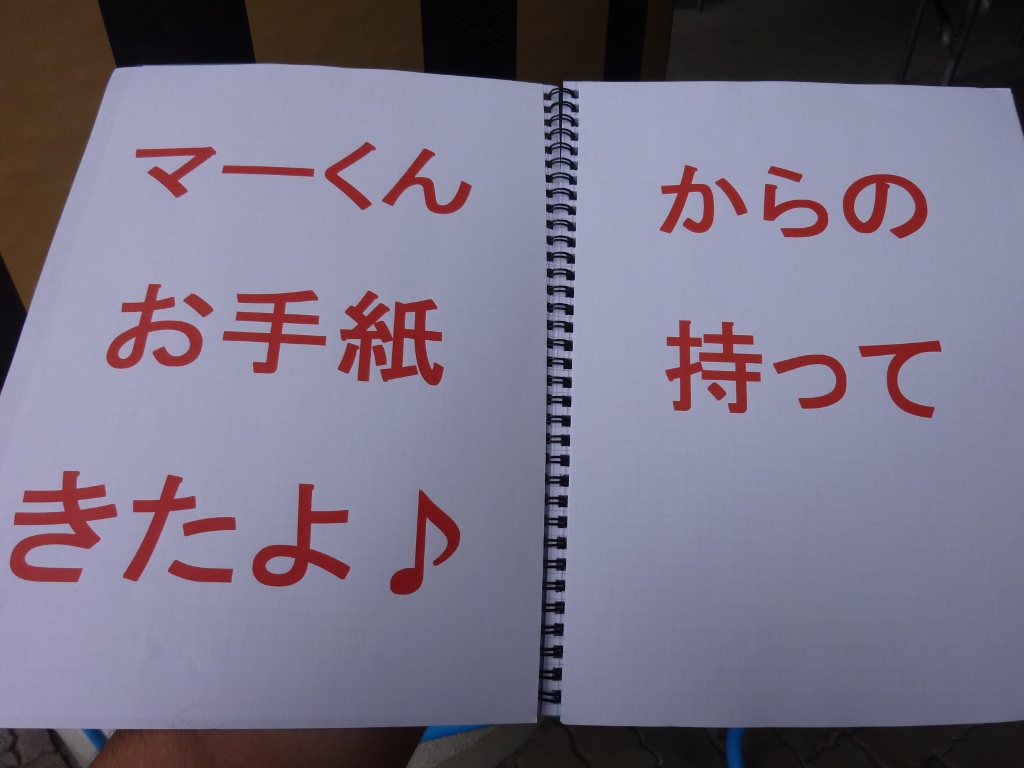 マーくんからの
お手紙持って
きたよ♪